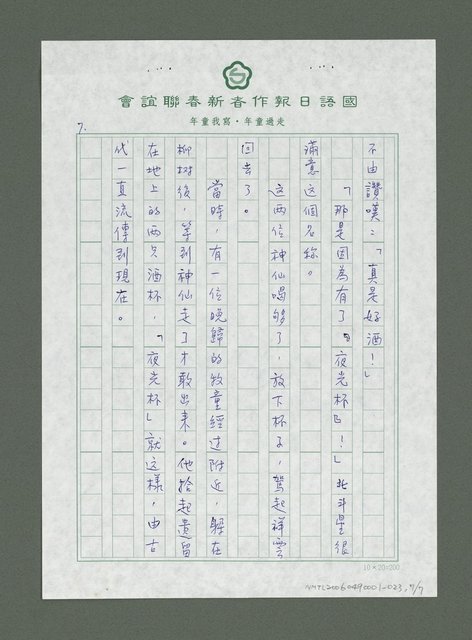 國語日報作者新春聯誼會
走過童年・寫我童年
7.
不由讚嘆:「真是好酒!」
「那是因為有了『夜光杯』!」北斗星很
滿意這個名稱。
這兩位神仙喝夠了,放下杯子,駕起祥雲
回去了。
當時,有一位晚歸的牧童經過附近,躲在
柳樹後,等到神仙走了才敢出來。他拾起遺留
在地上的兩只酒杯,「夜光杯」就這樣,由古
代一直流傳到現在。
10×20=200
NMTL20060490001-023, 7/7